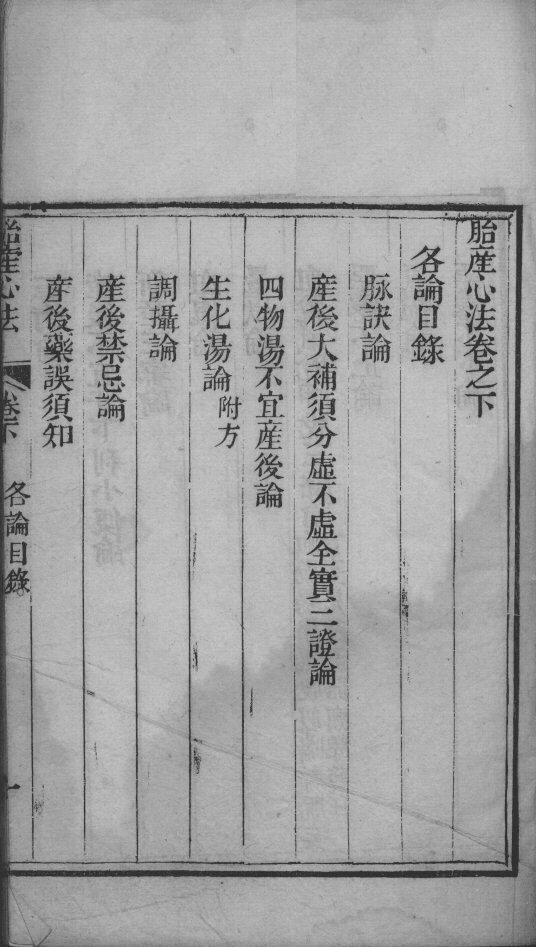 胎産心法卷之下
各論目錄
脉訣論
産後大補須分虛不虛全實三證論
四物湯不宜産後論
生化湯論附方
調攝論
産後禁忌論
産後藥誤須知
胎産心法 卷下 各論目錄 一